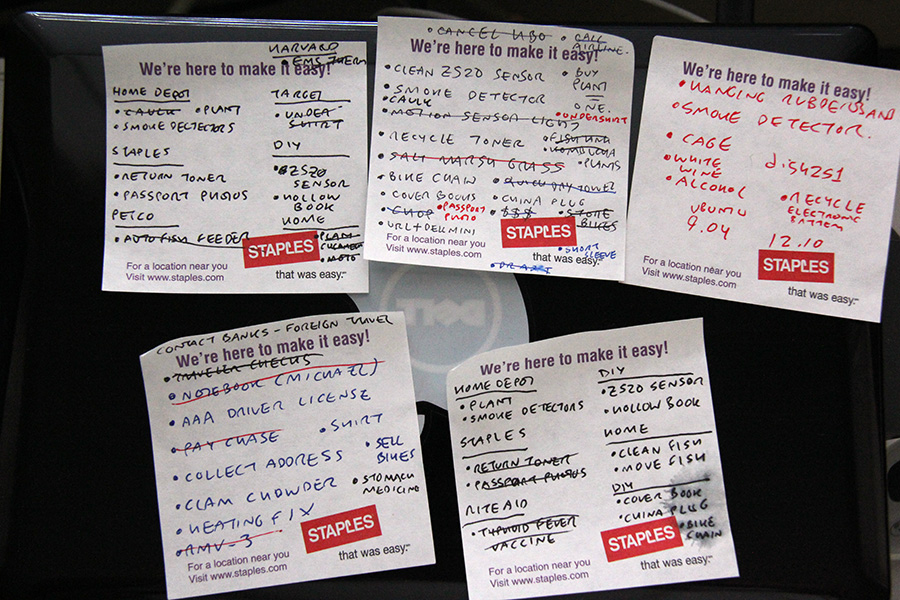 HARVARD
• EMS THERM
We're here to make it easy!
HOME DEPOT
• CAULK • PLANT
• SMOKE DETECTORS
STAPLES
• RETURN TONER
• PASSPORT PHOTOS
PETCO
• AUTO FISH FEEDER
TARGET
• UNDER-
SHIRT
DIY
• ZS20
SENSOR
• HOLLOW
BOOK
HOME
• PLAN
• MOTO
STAPLES
For a location near you
Visit www.staples.com
that was easy.™
• CANCEL UBO
• CALL
AIRLINE.
We're here to make it easy!
• CLEAN ZS20 SENSOR
• SMOKE DETECTOR
• CAULK
• MOTION SENSOR LIGHT
• RECYCLE TONER
• SALT MARSH GRASS
• BIKE CHAIN
• COVER BOOKS
• CHOP
• PASSPORT
PHOTO
• URL + DELL MINI
• BUY
PLANT
ONE.
• UNDERSHIRT
• FISH TANK
• KOMBUCHA
• PLANTS
• QUICK DRY TOWEL
• CHINA PLUG
• $$$
• STORE
BIKES
• SHORT
SLEEVE
STAPLES
For a location near you
Visit www.staples.com
that was easy.™
We're here to make it easy!
• HANGING RUBBERBAND
• SMOKE DETECTOR.
• CAGE
• WHITE
WINE
• ALCOHOL
UBUNTU
9.04
dish2s1
• RECYCLE
ELECTRONIC
BATTERY
12.10
STAPLES
For a location near you
Visit www.staples.com
that was easy.™
DELL
CONTACT BANKS - FOREIGN TRAVEL
We're here to make it easy!
• TRAVELLER CHECKS
• NOTEBOOK (MICHAEL)
• AAA DRIVER LICENSE
• PAY CHASE
• SHIRT
• COLLECT ADDRESS
• SELL
BIKES
• CLAM CHOWDER
• STOMACH
MEDICINE
• HEATING FIX
• RMV-3
STAPLES
For a location near you
Visit www.staples.com
that was easy.™
We're here to make it easy!
HOME DEPOT
• PLANT
• SMOKE DETECTORS
STAPLES
• RETURN TONER
• PASSPORT PHOTOS
RITEAID
• TYPHOID FEVER
VACCINE
DIY
• ZS20 SENSOR
• HOLLOW BOOK
HOME
• CLEAN FISH
• MOVE FISH
DIY
• COVER BOOK
• CHINA PLUG
• BIKE
CHAIN
STAPLES
For a location near you
Visit www.staples.com
that was easy.™